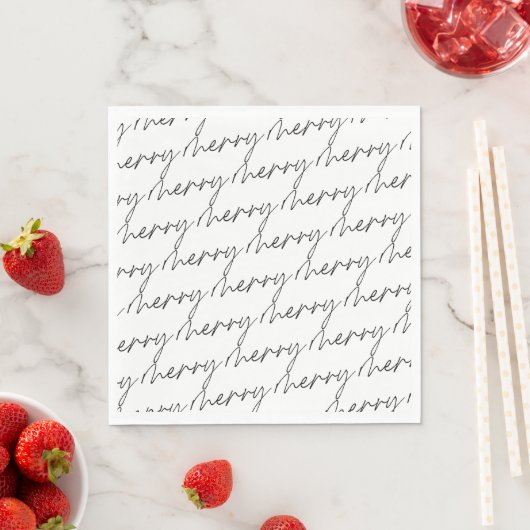 merry merry merry
merry merry merry
merry merry merry
merry merry merry
merry merry merry
merry merry merry
merry merry merry
merry merry merry
merry merry merry
merry